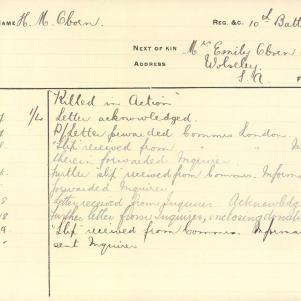 NAME H. M. Oborn. REG. &C. 10th Batt
NEXT OF KIN Mrs Emily Oborn
ADDRESS Wolseley
S.A.
F
1/4 "Killed in Action"
Letter acknowledged.
letter forwarded Commrs London.
8 "Slip" received from " " Inf
therein forwarded Inquirer
further slip received from Commrs. Informa
forwarded Inquirer
letter received from Inquirer. Acknowledg
18 further letter from Inquirer, enclosing donati
9 "Slip" received from Commrs. Informa
" sent Inquirer